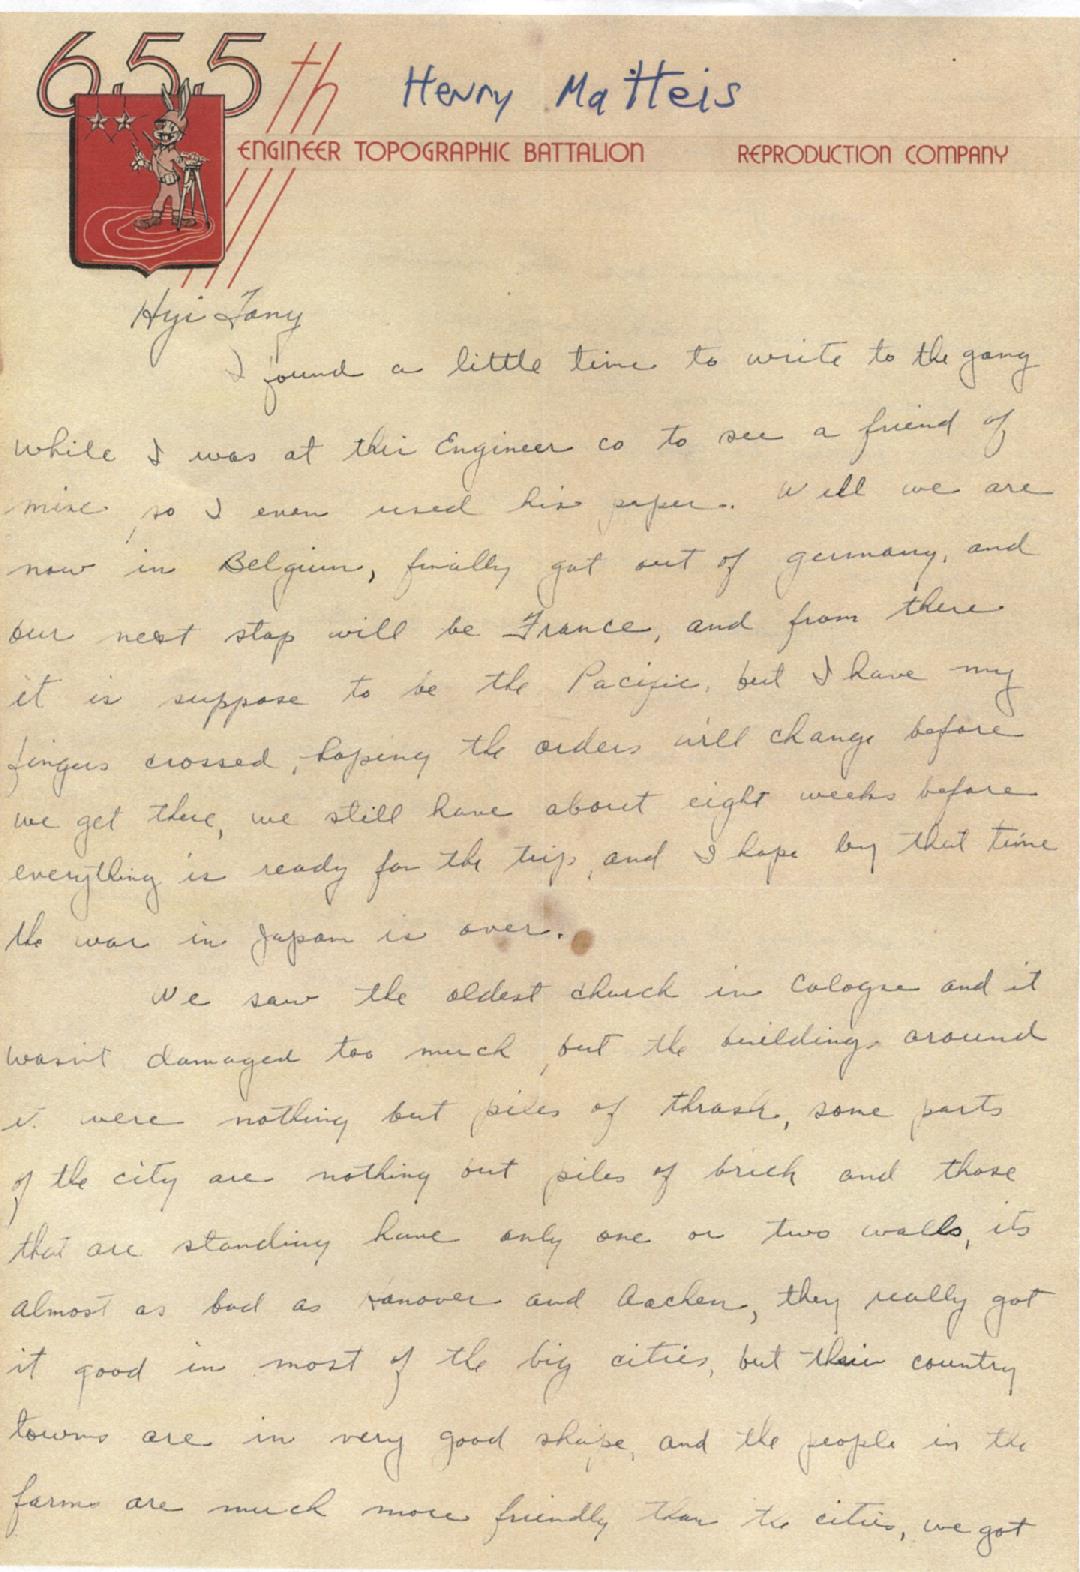 655th
Henry Matteis
ENGINEER TOPOGRAPHIC BATTALION REPRODUCTION COMPANY
Hyi Tony
I found a little time to write to the gang
while I was at this Engineer co to see a friend of
mine, so I even used his paper. Well we are
now in Belgium, finally got out of germany, and
our next stop will be France, and from there
it is suppose to be the Pacific, but I have my
fingers crossed, hoping the orders will change before
we get there, we still have about eight weeks before
everything is ready for the trip, and I hope by that time
the war in Japan is over.
We saw the oldest church in Cologne and it
wasn't damaged too much, but the buildings around
it were nothing but piles of thrash, some parts
of the city are nothing but piles of brick and those
that are standing have only one or two walls, its
almost as bad as Hanover and Aachen, they really got
it good in most of the big cities, but their country
towns are in very good shape, and the people in the
farms are much more friendly than the cities, we got